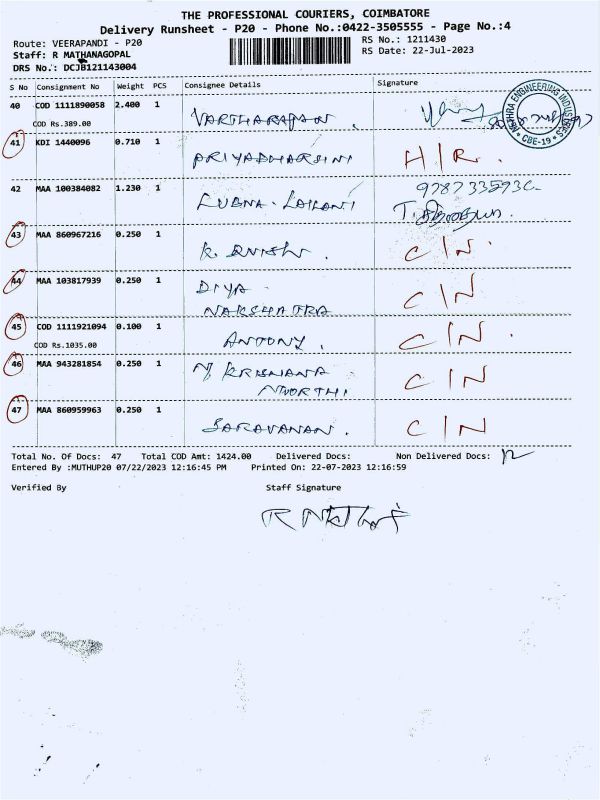 THE PROFESSIONAL COURIERS, COIMBATORE
Delivery Runsheet - P20 - Phone No.:0422-3505555 - Page No.:4
Route: VEERAPANDI - P20
RS No.: 1211430
Staff: R MATHANAGOPAL
RS Date: 22-Jul-2023
DRS No.: DCJB121143004
S No Consignment No Weight PCS Consignee Details Signature
40 COD 1111890058 2.400 1 VARTHARAJAN.
COD Rs.389.00
ENGINEERING INDUSTRIES
CBE-19
41 KDI 1440096 0.710 1 PRIYADHARSINI H/R.
42 MAA 100384082 1.230 1 LUBNA. LAILANI
43 MAA 860967216 0.250 1 K. C/N.
44 MAA 103817939 0.250 1 DIYA C/N
NAKSHATRA
45 COD 1111921094 0.100 1 ANTONY. C/N.
COD Rs.1035.00
46 MAA 943281854 0.250 1 KRISHNA C/N
MOORTHI
47 MAA 860959963 0.250 1 SARAVANAN. C/N
Total No. Of Docs: 47 Total COD Amt: 1424.00 Delivered Docs: Non Delivered Docs: 12
Entered By :MUTHUP20 07/22/2023 12:16:45 PM Printed On: 22-07-2023 12:16:59
Verified By Staff Signature